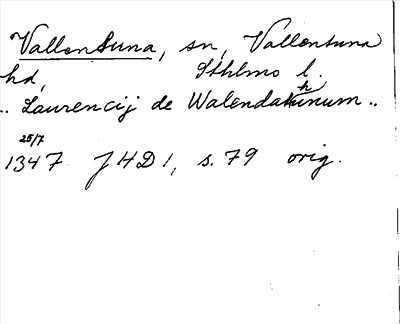 Vallentuna, sn, Vallentuna
hd, Sthlms l.
.. Laurencij de Walendathunum ..
25/7
1347 JHD 1, s. 79 orig.